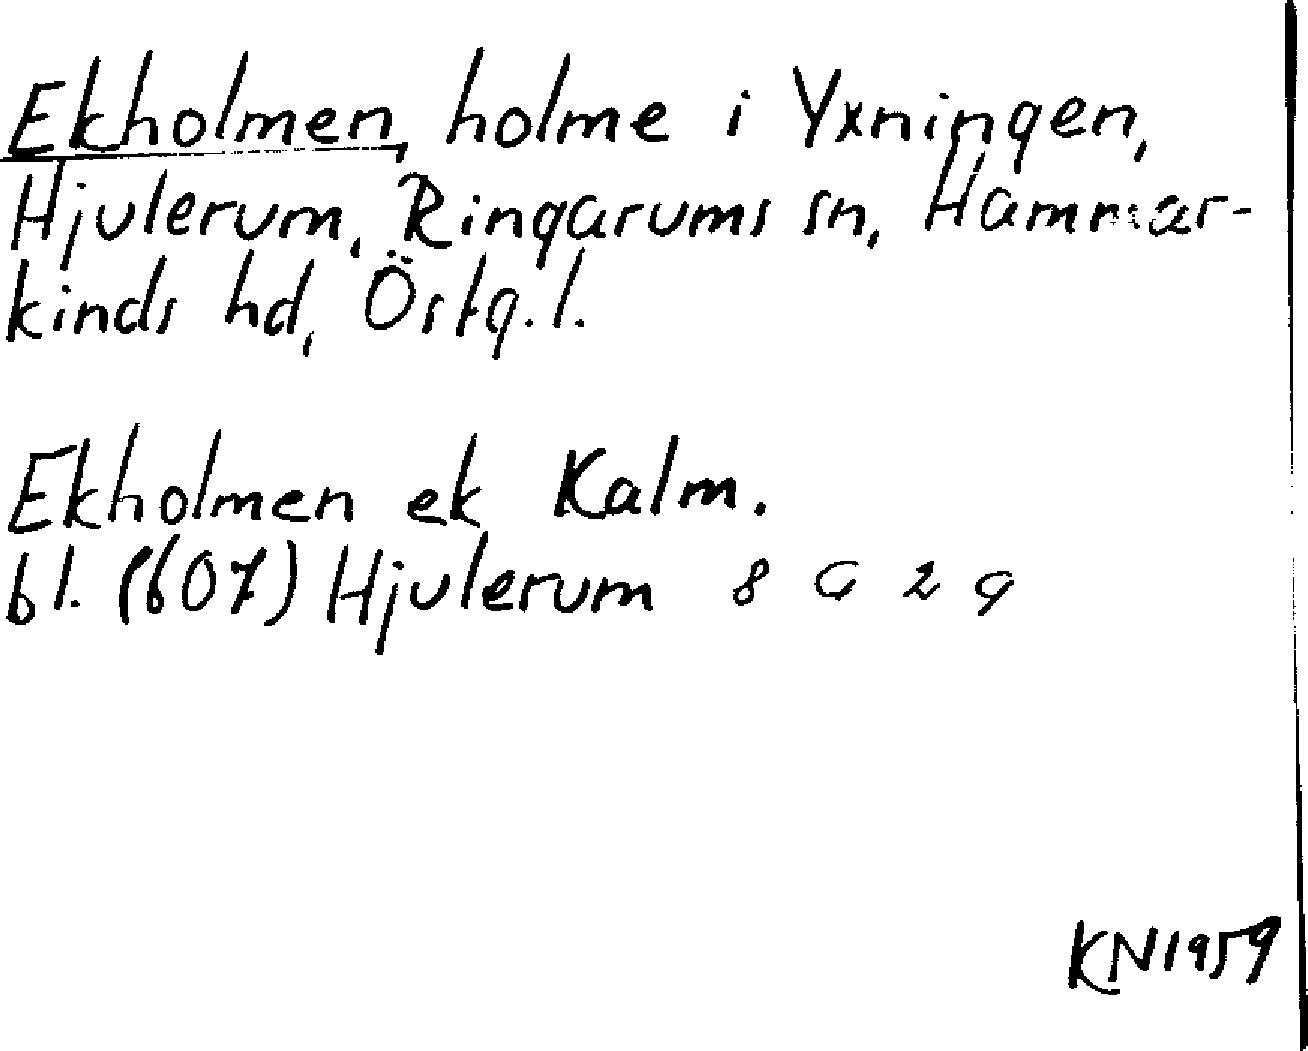 Ekholmen, holme i Yxningen,
Hjulerum, Ringarums sn, Hammar-
kinds hd, Östg.l.
Ekholmen ek Kalm.
bl. (607) Hjulerum 8 G 2 g
KN1959